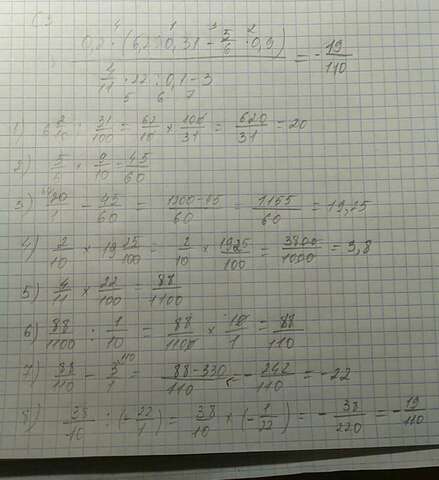 4 1 3 2
0,2 · (6,2 : 0,31 - 5/6 · 0,9)
= - 19/110
4/11 · 22 : 0,1 - 3
5 6 7
1) 6 2/10 : 31/100 = 62/10 × 100/31 = 620/31 = 20
2) 5/6 × 9/10 = 45/60
3) 20/1 - 45/60 = 1200-45/60 = 1155/60 = 19,25
4) 2/10 × 19 25/100 = 2/10 × 1925/100 = 3800/1000 = 3,8
5) 4/11 × 22/100 = 88/1100
6) 88/1100 : 1/10 = 88/1100 × 10/1 = 88/110
7) 88/110 - 3/1 110 = 88-330/110 = - 242/110 = -22
8) 38/10 : (- 22/1) = 38/10 × (- 1/22) = - 38/220 = - 19/110